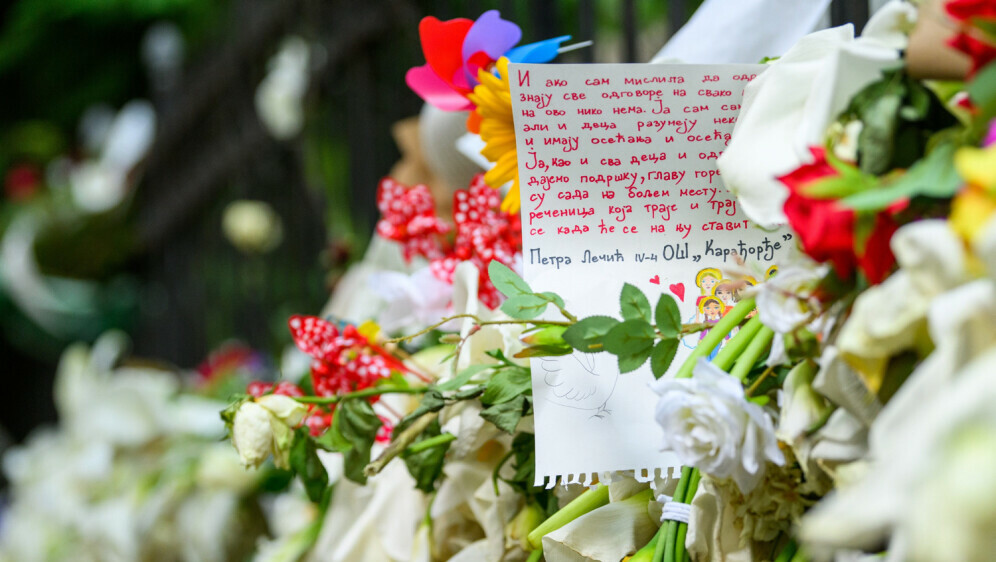 И ако сам мислила да
знају све одговоре на свако
на ово нико нема. Ја сам
али и деца разумеју
и имају осећања и
Ја, као и сва деца и
дајемо подршку, главу
су сада на бољем месту.
реченица која траје и
се када ће се на њу ставит
Петра Лечић IV-4 ОШ „Карађорђе”